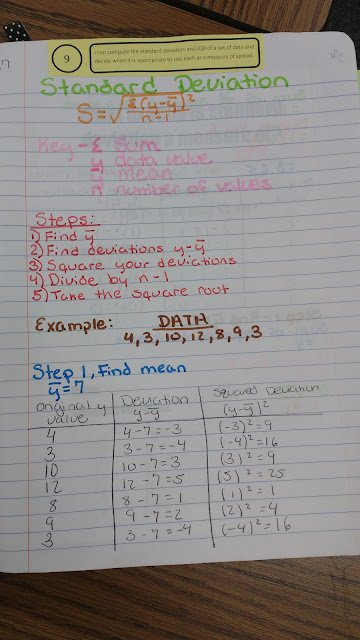 9
I can compute the standard deviation and IQR of a set of data and
decide when it is appropriate to use each as a measure of spread.
Standard Deviation
S=√Σ(y-ȳ)²
n-1
Key - Σ sum
y data value
ȳ mean
n number of values
Steps:
1) Find ȳ
2) Find deviations y-ȳ
3) Square your deviations
4) Divide by n-1
5) Take the square root
Example: DATA
4, 3, 10, 12, 8, 9, 3
Step 1, Find mean
ȳ=7
original y value Deviation y-ȳ Squared Deviation (y-ȳ)²
4 4-7=-3 (-3)²=9
3 3-7=-4 (-4)²=16
10 10-7=3 (3)²=9
12 12-7=5 (5)²=25
8 8-7=1 (1)²=1
9 9-7=2 (2)²=4
3 3-7=-4 (-4)²=16